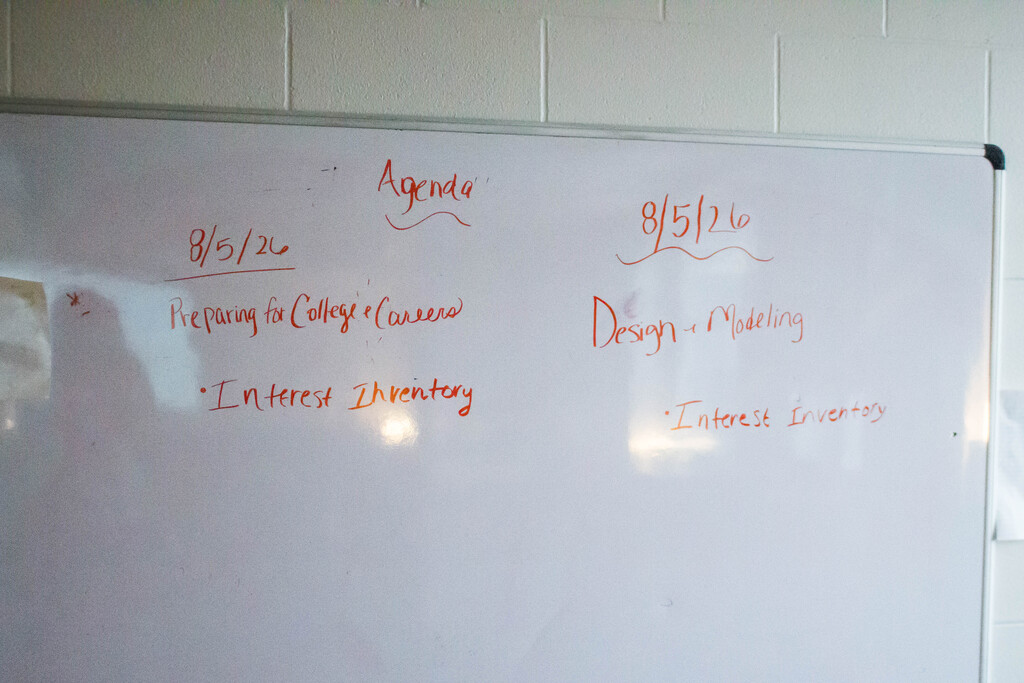 Agenda
8/5/26
Preparing for College & Careers
• Interest Inventory
8/5/26
Design & Modeling
• Interest Inventory